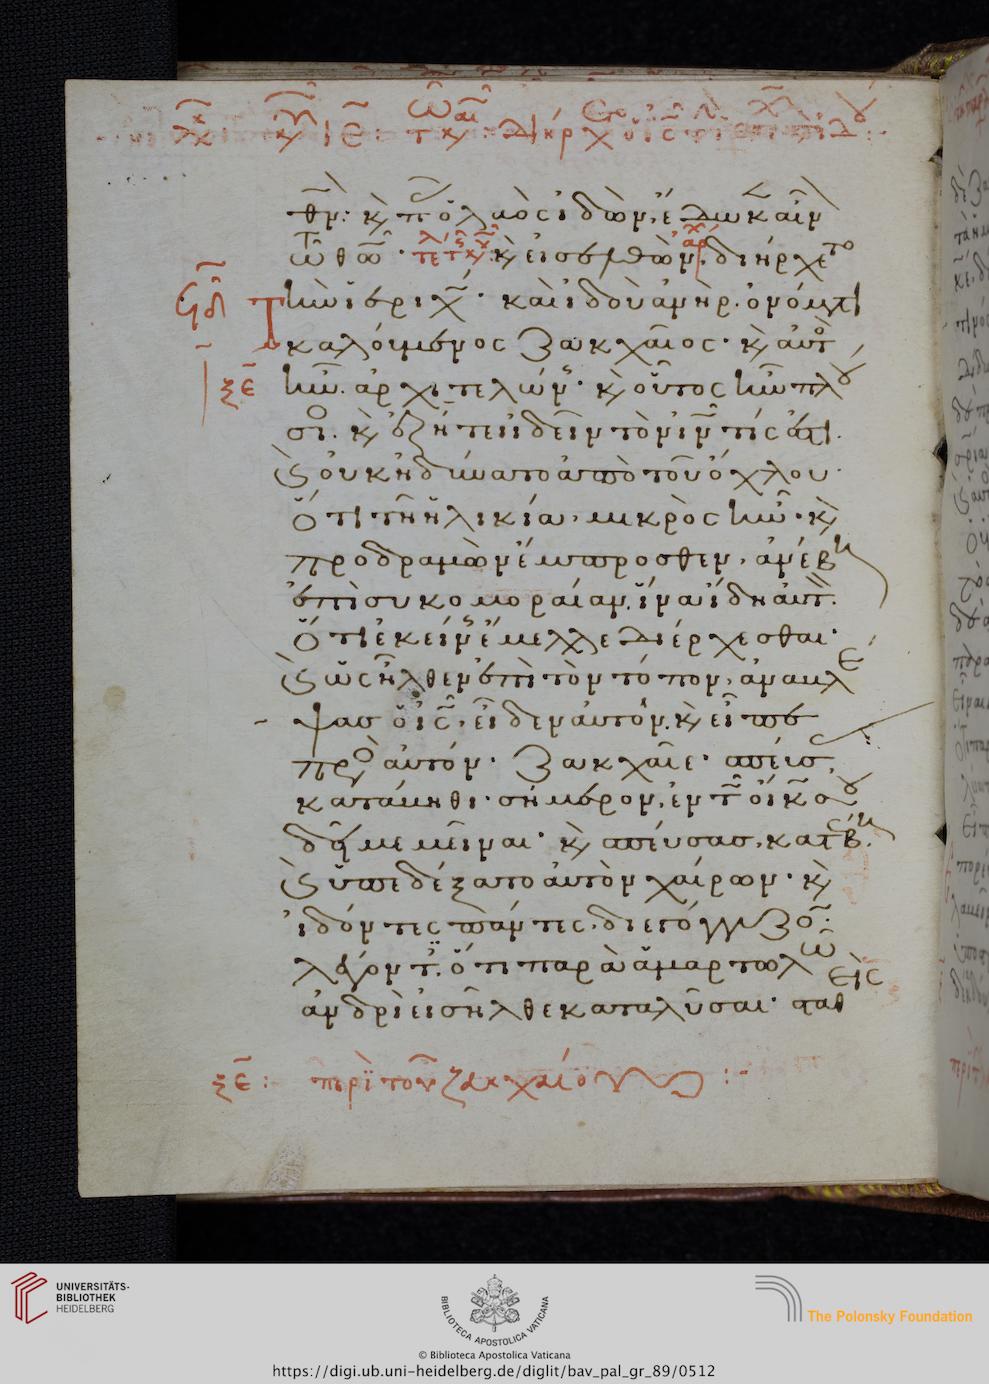 θν: κ πᾶς ὁ λαὸς ἰδὼν, ἔδωκεν αἶνον
τῶ θῶ· τέλος τῆς κυ: κ εἰσελθὼν, διήρχετο
σδλ Τὴν ἱεριχώ· καὶ ἰδοὺ ἀνὴρ. ὀνόματι
καλούμενος Ζακχαῖος· κ αὐτὸς
ξε ἦν. ἀρχιτελώνης· κ οὗτος ἦν πλού
σιος. κ ἐζήτει ἰδεῖν τὸν ιν τίς ἐστι.
κ οὐκ ἠδύνατο ἀπὸ τοῦ ὄχλου·
Ὅτι τῆ ἡλικία, μικρὸς ἦν· κ
προδραμὼν ἔμπροσθεν, ἀνέβη
ἐπὶ συκομοραίαν, ἵνα ἴδη αὐτόν.
Ὅτι ἐκείνης ἔμελλε διέρχεσθαι·
κ ὡς ἦλθεν ἐπὶ τὸν τόπον, ἀναβλέ
ψας ὁ ις, εἶδεν αὐτόν. κ εἶπε
πρὸς αὐτόν. Ζακχαῖε· σπεύσας,
κατάβηθι· σήμερον, ἐν τῶ οἴκω σου
δεῖ με μεῖναι· κ σπεύσας, κατέβη.
κ ὑπεδέξατο αὐτὸν χαίρων· κ
ἰδόντες πάντες, διεγόγγυζον:
λέγοντες. ὅτι παρὰ ἁμαρτωλῶ
ἀνδρὶ εἰσῆλθε καταλῦσαι· σταθεὶς
ξε: περὶ τοῦ ζακχαίου :-
UNIVERSITÄTS-
BIBLIOTHEK
HEIDELBERG
BIBLIOTECA APOSTOLICA VATICANA
© Biblioteca Apostolica Vaticana
The Polonsky Foundation
https://digi.ub.uni-heidelberg.de/diglit/bav_pal_gr_89/0512